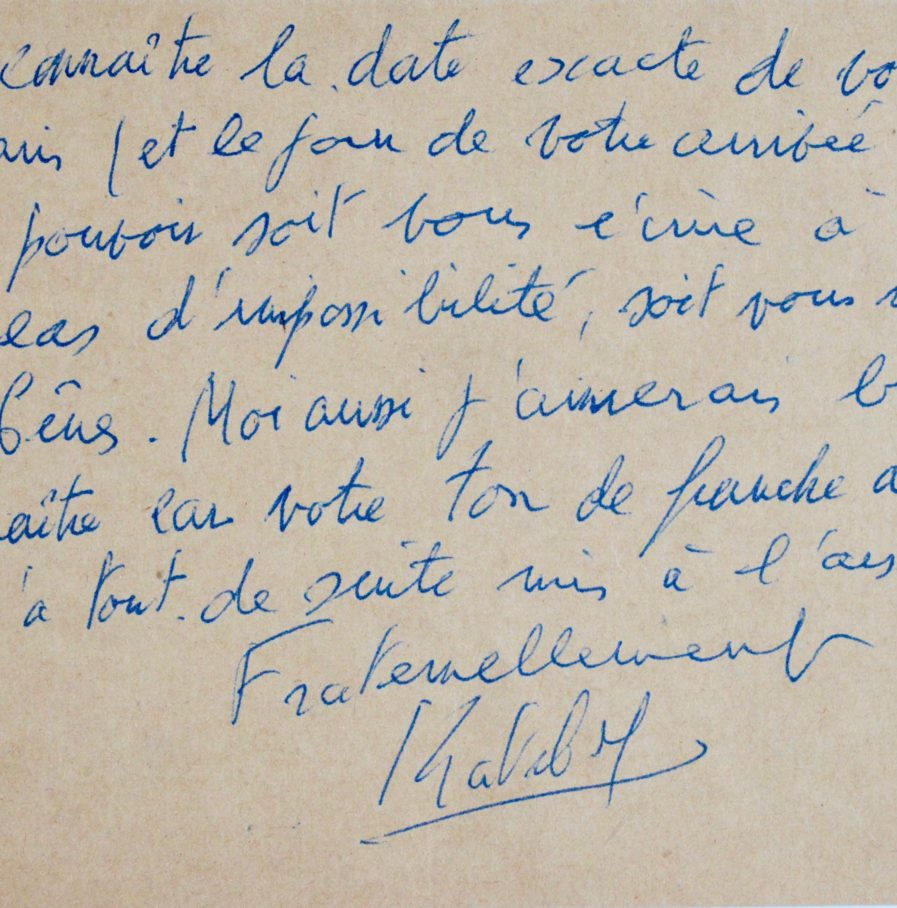 connaître la date exacte de vo
aris (et le jour de votre arrivée
pouvoir soit vous écrire à
cas d'impossibilité, soit vous
Moi aussi j'aimerais b
aître car votre ton de franche
'a tout de suite mis à l'ais
Fraternellement
Kateb Y